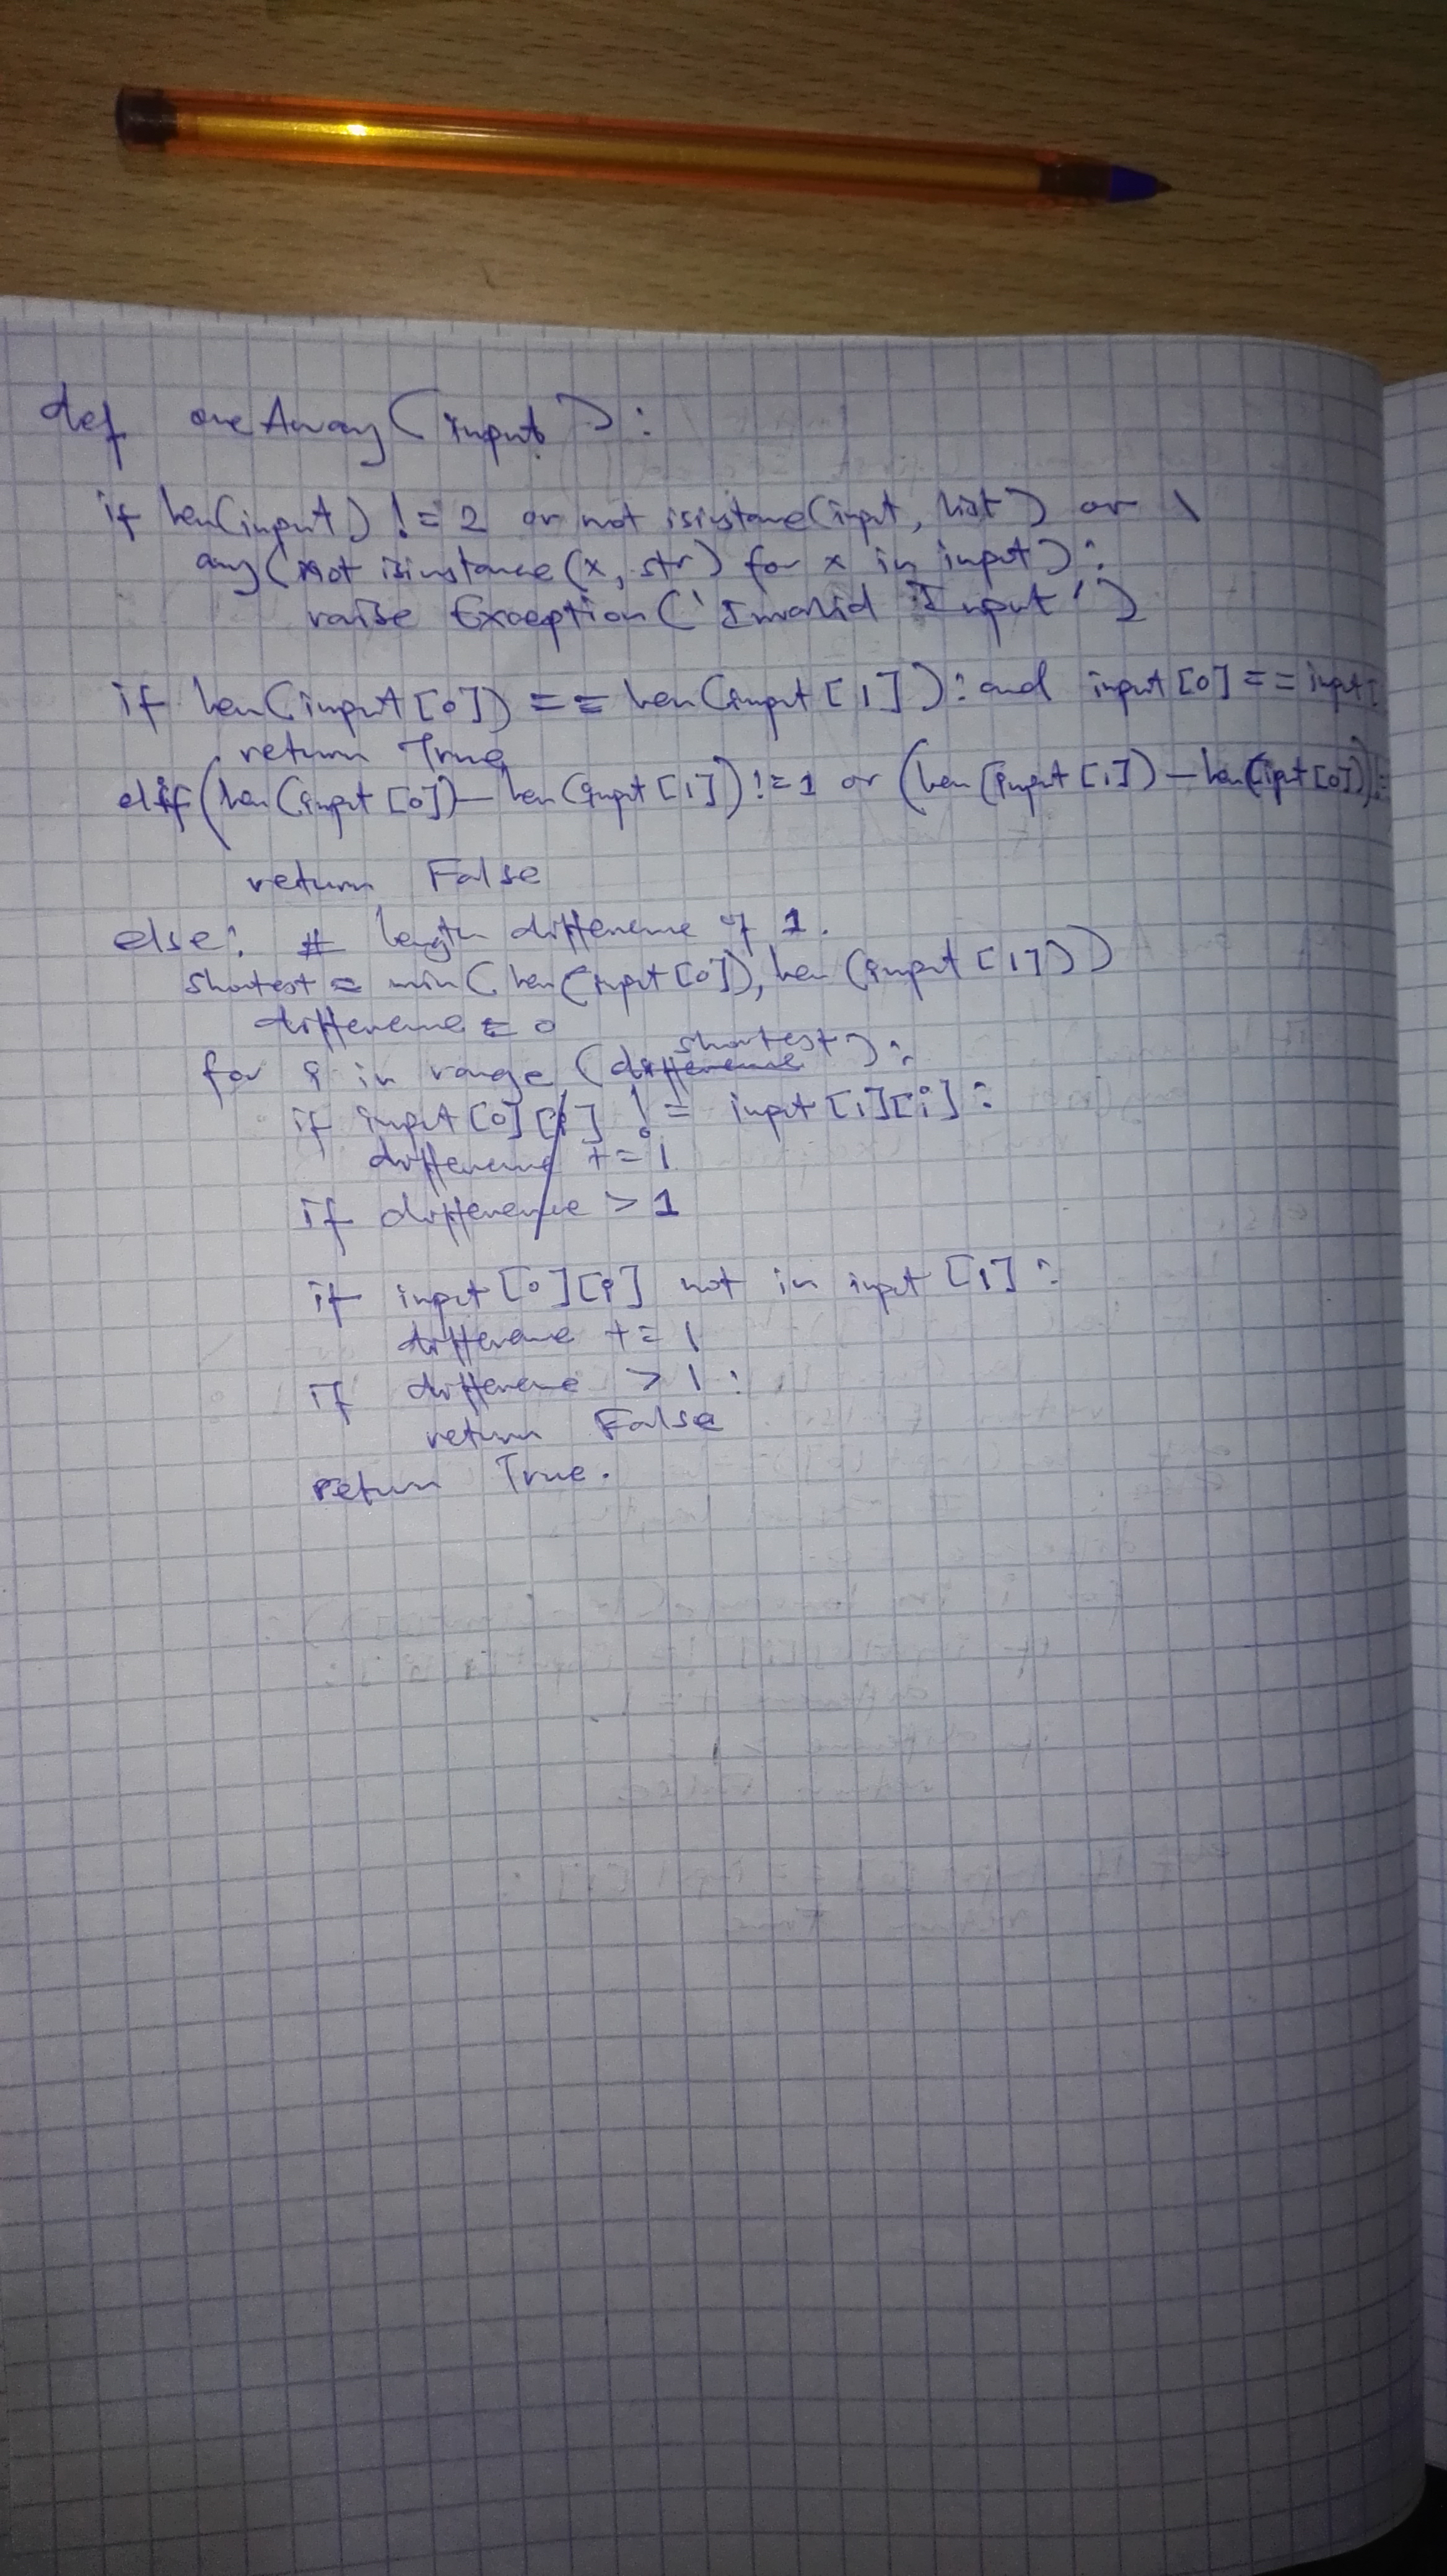 def oneAway(input):
if len(input) != 2 or not isinstance(input, list) or \
any(not isinstance(x, str) for x in input):
raise Exception('Invalid Input')
if len(input[0]) == len(input[1]): and input[0] == input[
return True
elif (len(input[0]) - len(input[1]) != 1 or (len(input[1]) - len(input[0])) !=
return False
else: # length difference of 1.
shortest = min(len(input[0]), len(input[1]))
difference = 0
for i in range (difference shortest):
if input[0][i] != input[1][i]:
difference += 1
if difference > 1
if input[0][i] not in input[1]:
difference += 1
if difference > 1:
return False
return True.